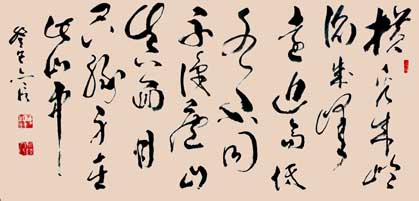 横看成岭
侧成峰
远近高低
各不同
不识庐山
真面目
只缘身在
此山中
癸巳